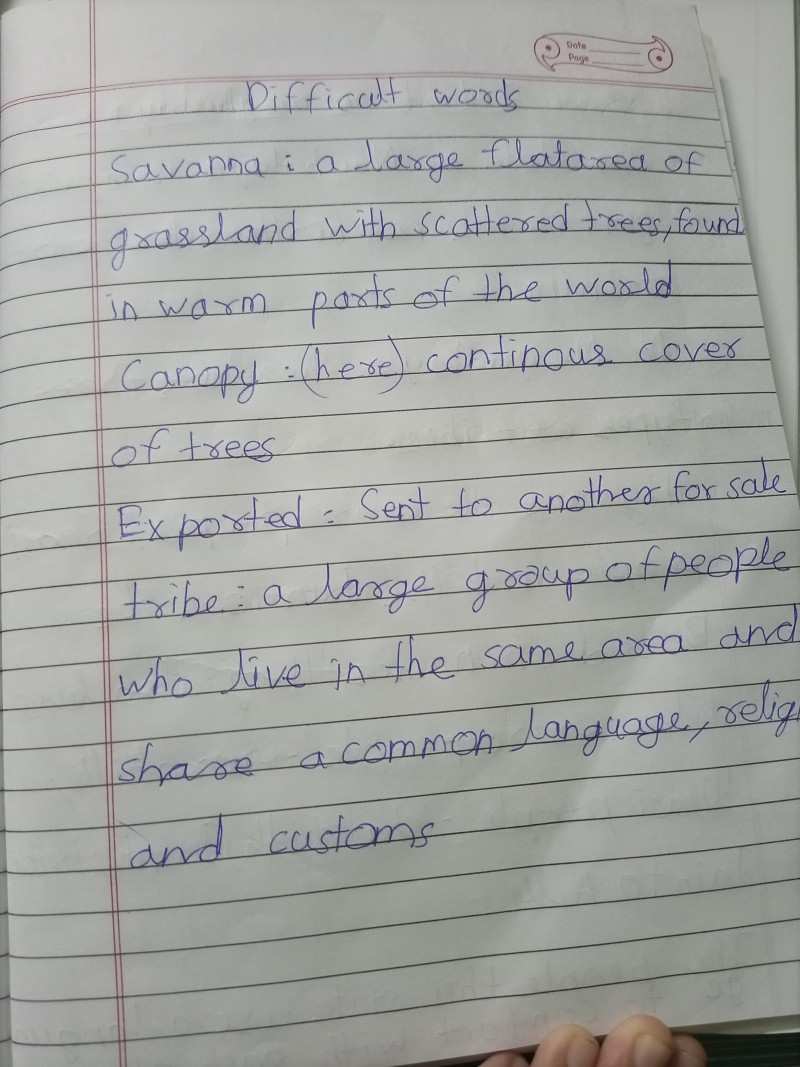 Date
Page
Difficult words
Savanna : a large flatarea of
grassland with scattered trees, found
in warm parts of the world
Canopy :(here) continous cover
of trees
Exported : Sent to another for sale
tribe : a large group of people
who live in the same area and
share a common language, relig
and customs